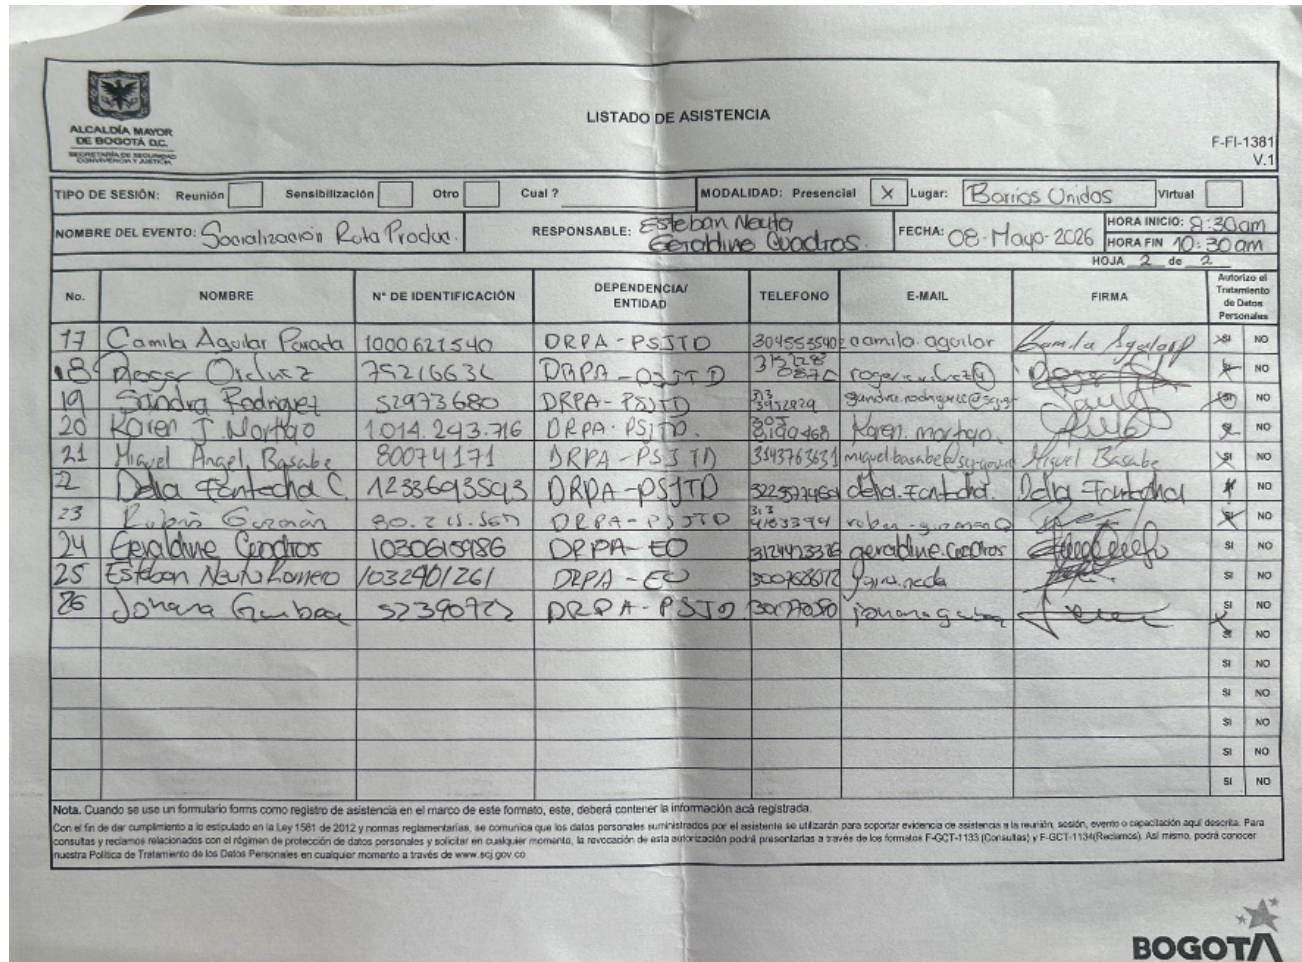 ALCALDÍA MAYOR
DE BOGOTÁ D.C.
SECRETARÍA DE SEGURIDAD
CONVIVENCIA Y JUSTICIA
LISTADO DE ASISTENCIA
F-FI-1381
V.1
TIPO DE SESIÓN: Reunión Sensibilización Otro Cual ? MODALIDAD: Presencial X Lugar: Barrios Unidos Virtual
NOMBRE DEL EVENTO: Socialización Ruta Produc. RESPONSABLE: Esteban Neuta Geraldine Cuadros. FECHA: 08-Mayo-2026 HORA INICIO: 8:30am
HORA FIN 10:30am
HOJA 2 de 2
No. NOMBRE N° DE IDENTIFICACIÓN DEPENDENCIA/ ENTIDAD TELEFONO E-MAIL FIRMA Autorizo el Tratamiento de Datos Personales
17 Camila Aguilar Parada 1000621540 DRPA-PSJTD 3045535402 camila.aguilar Camila Aguilar P SI NO
18 Roger 79216631 DRPA-PSJTD NO
19 Sandra Rodriguez 52973680 DRPA-PSJTD 313 3952829 sandra.rodriguez@scj.g SI NO
20 Karen J. Martgo 1.014.243.716 DRPA-PSJTD. 305 8199468 Karen. SI NO
21 Miguel Angel Basabe 80074171 DRPA-PSJTD 3143763631 miguel.basabe@scj.gov.co Miguel Basabe SI NO
22 Delia Fontecha C. 1233693593 DRPA-PSJTD delia.fontecha. Delia Fontecha NO
23 Rubén Guzmán DRPA-PSJTD 313 4183394 ruben.guzman@ SI NO
24 Geraldine Cuadros 1030615986 DRPA-EO geraldine.cuadros SI NO
25 Esteban Neuta Romero 1032401261 DRPA-EO SI NO
26 Johana 52390722 DRPA-PSJTD SI NO
SI NO
SI NO
SI NO
SI NO
SI NO
SI NO
Nota. Cuando se use un formulario forms como registro de asistencia en el marco de este formato, este, deberá contener la información acá registrada.
Con el fin de dar cumplimiento a lo estipulado en la Ley 1581 de 2012 y normas reglamentarias, se comunica que los datos personales suministrados por el asistente se utilizarán para soportar evidencia de asistencia a la reunión, sesión, evento o capacitación aquí descrita. Para
consultas y reclamos relacionados con el régimen de protección de datos personales y solicitar en cualquier momento, la revocación de esta autorización podrá presentarlas a través de los formatos F-GCT-1133 (Consultas) y F-GCT-1134(Reclamos). Así mismo, podrá conocer
nuestra Política de Tratamiento de los Datos Personales en cualquier momento a través de www.scj.gov.co
BOGOTÁ